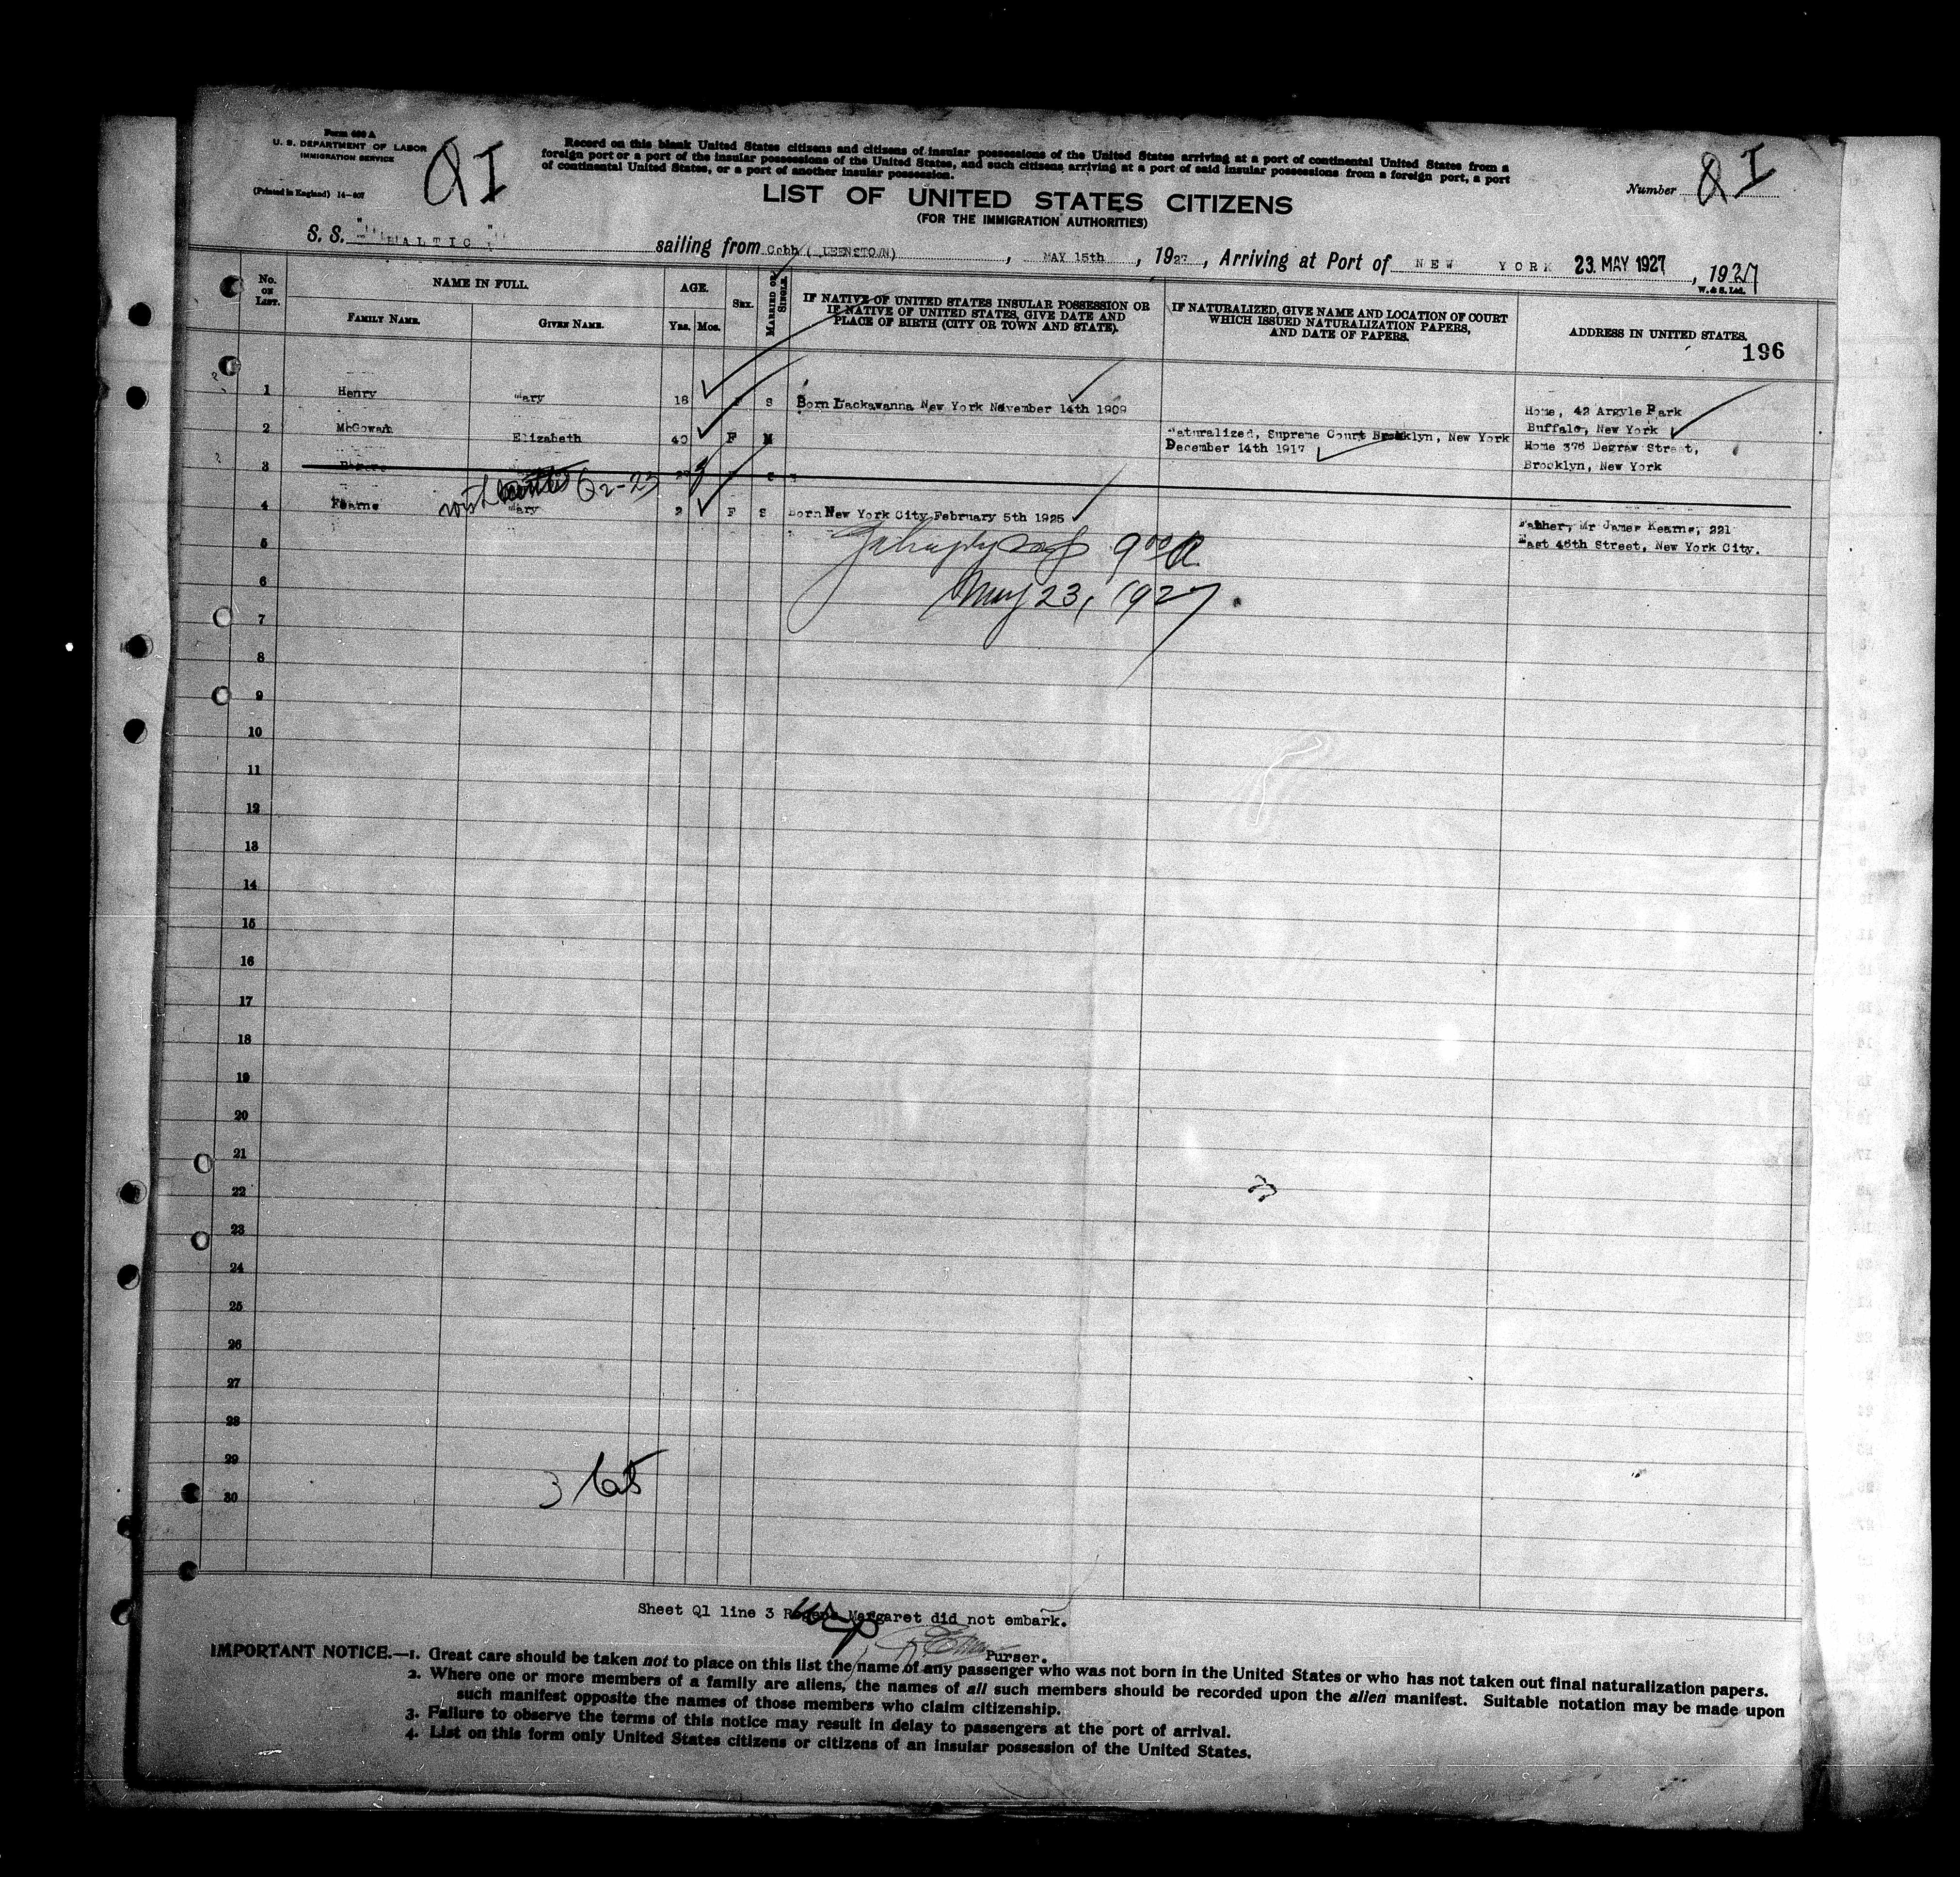 Form 630 A
U. S. DEPARTMENT OF LABOR
IMMIGRATION SERVICE
(Printed in England) 14-807
QI
Record on this blank United States citizens and citizens of insular possessions of the United States arriving at a port of continental United States from a
foreign port or a port of the insular possessions of the United States, and such citizens arriving at a port of said insular possessions from a foreign port, a port
of continental United States, or a port of another insular possession.
Number QI
LIST OF UNITED STATES CITIZENS
(FOR THE IMMIGRATION AUTHORITIES)
S. S. "BALTIC" sailing from Cobh ( UEENSTOWN), MAY 15th, 1927, Arriving at Port of NEW YORK 23. MAY 1927, 1927
W. & S. Ltd.
No. on List.
NAME IN FULL.
Family Name.
Given Name.
AGE.
Yrs. Mos.
Sex.
Married or Single.
IF NATIVE OF UNITED STATES INSULAR POSSESSION OR
IF NATIVE OF UNITED STATES, GIVE DATE AND
PLACE OF BIRTH (CITY OR TOWN AND STATE).
IF NATURALIZED, GIVE NAME AND LOCATION OF COURT
WHICH ISSUED NATURALIZATION PAPERS,
AND DATE OF PAPERS.
ADDRESS IN UNITED STATES.
196
1 Henry Mary 18 F S Born Lackawanna New York November 14th 1909 Home, 42 Argyle Park
Buffalo, New York
2 McGowan Elizabeth 40 F M Naturalized, Supreme Court Brooklyn, New York
December 14th 1917
Home 376 Degraw Street,
Brooklyn, New York
3
4 Kearns Mary 2 F S Born New York City February 5th 1925 Father, Mr James Kearns, 221
East 48th Street, New York City.
5
9 00 A
6
May 23, 1927
7
8
9
10
11
12
13
14
15
16
17
18
19
20
21
22
23
24
25
26
27
28
29
3
30
Sheet Q1 line 3 Rogers Margaret did not embark.
Purser.
IMPORTANT NOTICE.—1. Great care should be taken not to place on this list the name of any passenger who was not born in the United States or who has not taken out final naturalization papers.
2. Where one or more members of a family are aliens, the names of all such members should be recorded upon the alien manifest. Suitable notation may be made upon
such manifest opposite the names of those members who claim citizenship.
3. Failure to observe the terms of this notice may result in delay to passengers at the port of arrival.
4. List on this form only United States citizens or citizens of an insular possession of the United States.